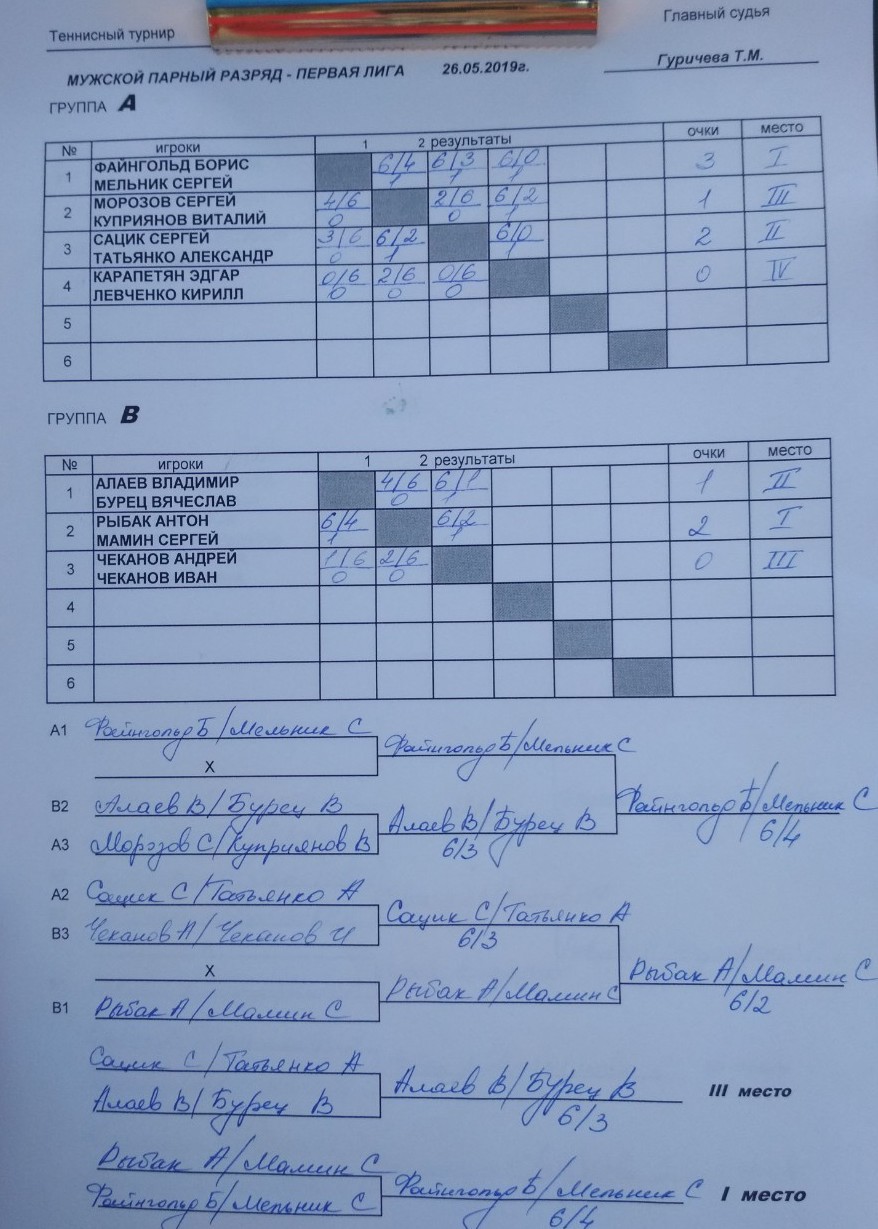 Теннисный турнир
Главный судья
МУЖСКОЙ ПАРНЫЙ РАЗРЯД - ПЕРВАЯ ЛИГА 26.05.2019г. Гуричева Т.М.
ГРУППА А
№ игроки 1 2 результаты очки место
1 ФАЙНГОЛЬД БОРИС 6/4 6/3 6/0 3 I
МЕЛЬНИК СЕРГЕЙ 1 1 1
2 МОРОЗОВ СЕРГЕЙ 4/6 2/6 6/2 1 III
КУПРИЯНОВ ВИТАЛИЙ 0 0 1
3 САЦИК СЕРГЕЙ 3/6 6/2 6/0 2 II
ТАТЬЯНКО АЛЕКСАНДР 0 1 1
4 КАРАПЕТЯН ЭДГАР 0/6 2/6 0/6 0 IV
ЛЕВЧЕНКО КИРИЛЛ 0 0 0
5
6
ГРУППА В
№ игроки 1 2 результаты очки место
1 АЛАЕВ ВЛАДИМИР 4/6 6/1 1 II
БУРЕЦ ВЯЧЕСЛАВ 0 1
2 РЫБАК АНТОН 6/4 6/2 2 I
МАМИН СЕРГЕЙ 1 1
3 ЧЕКАНОВ АНДРЕЙ 1/6 2/6 0 III
ЧЕКАНОВ ИВАН 0 0
4
5
6
А1 Файнгольд Б/Мельник С
Файнгольд Б/Мельник С
Х
В2 Алаев В/Бурец В
Файнгольд Б/Мельник С
6/4
Алаев В/Бурец В
6/3
А3 Морозов С/Куприянов В
А2 Сацик С/Татьянко А
Сацик С/Татьянко А
6/3
В3 Чеканов А/Чеканов И
Х
Рыбак А/Мамин С
6/2
Рыбак А/Мамин С
В1 Рыбак А/Мамин С
Сацик С/Татьянко А
Алаев В/Бурец В III место
6/3
Алаев В/Бурец В
Рыбак А/Мамин С
Файнгольд Б/Мельник С I место
6/4
Файнгольд Б/Мельник С